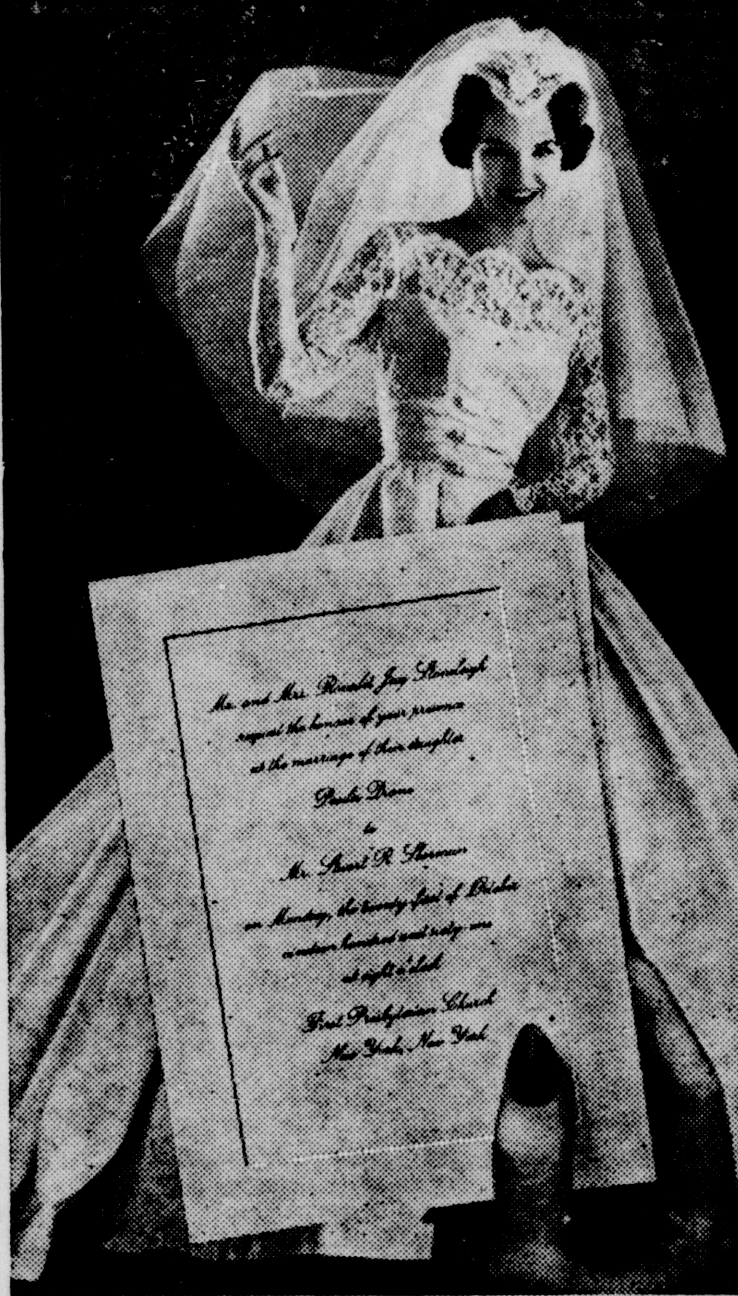 Mr. and Mrs. Ronald Jay
request the honour of your presence
at the marriage of their daughter
Paula Diane
to
Mr. Stuart R. Sherman
on Monday, the twenty first of October
nineteen hundred and sixty one
at eight o'clock
First Presbyterian Church
New York, New York